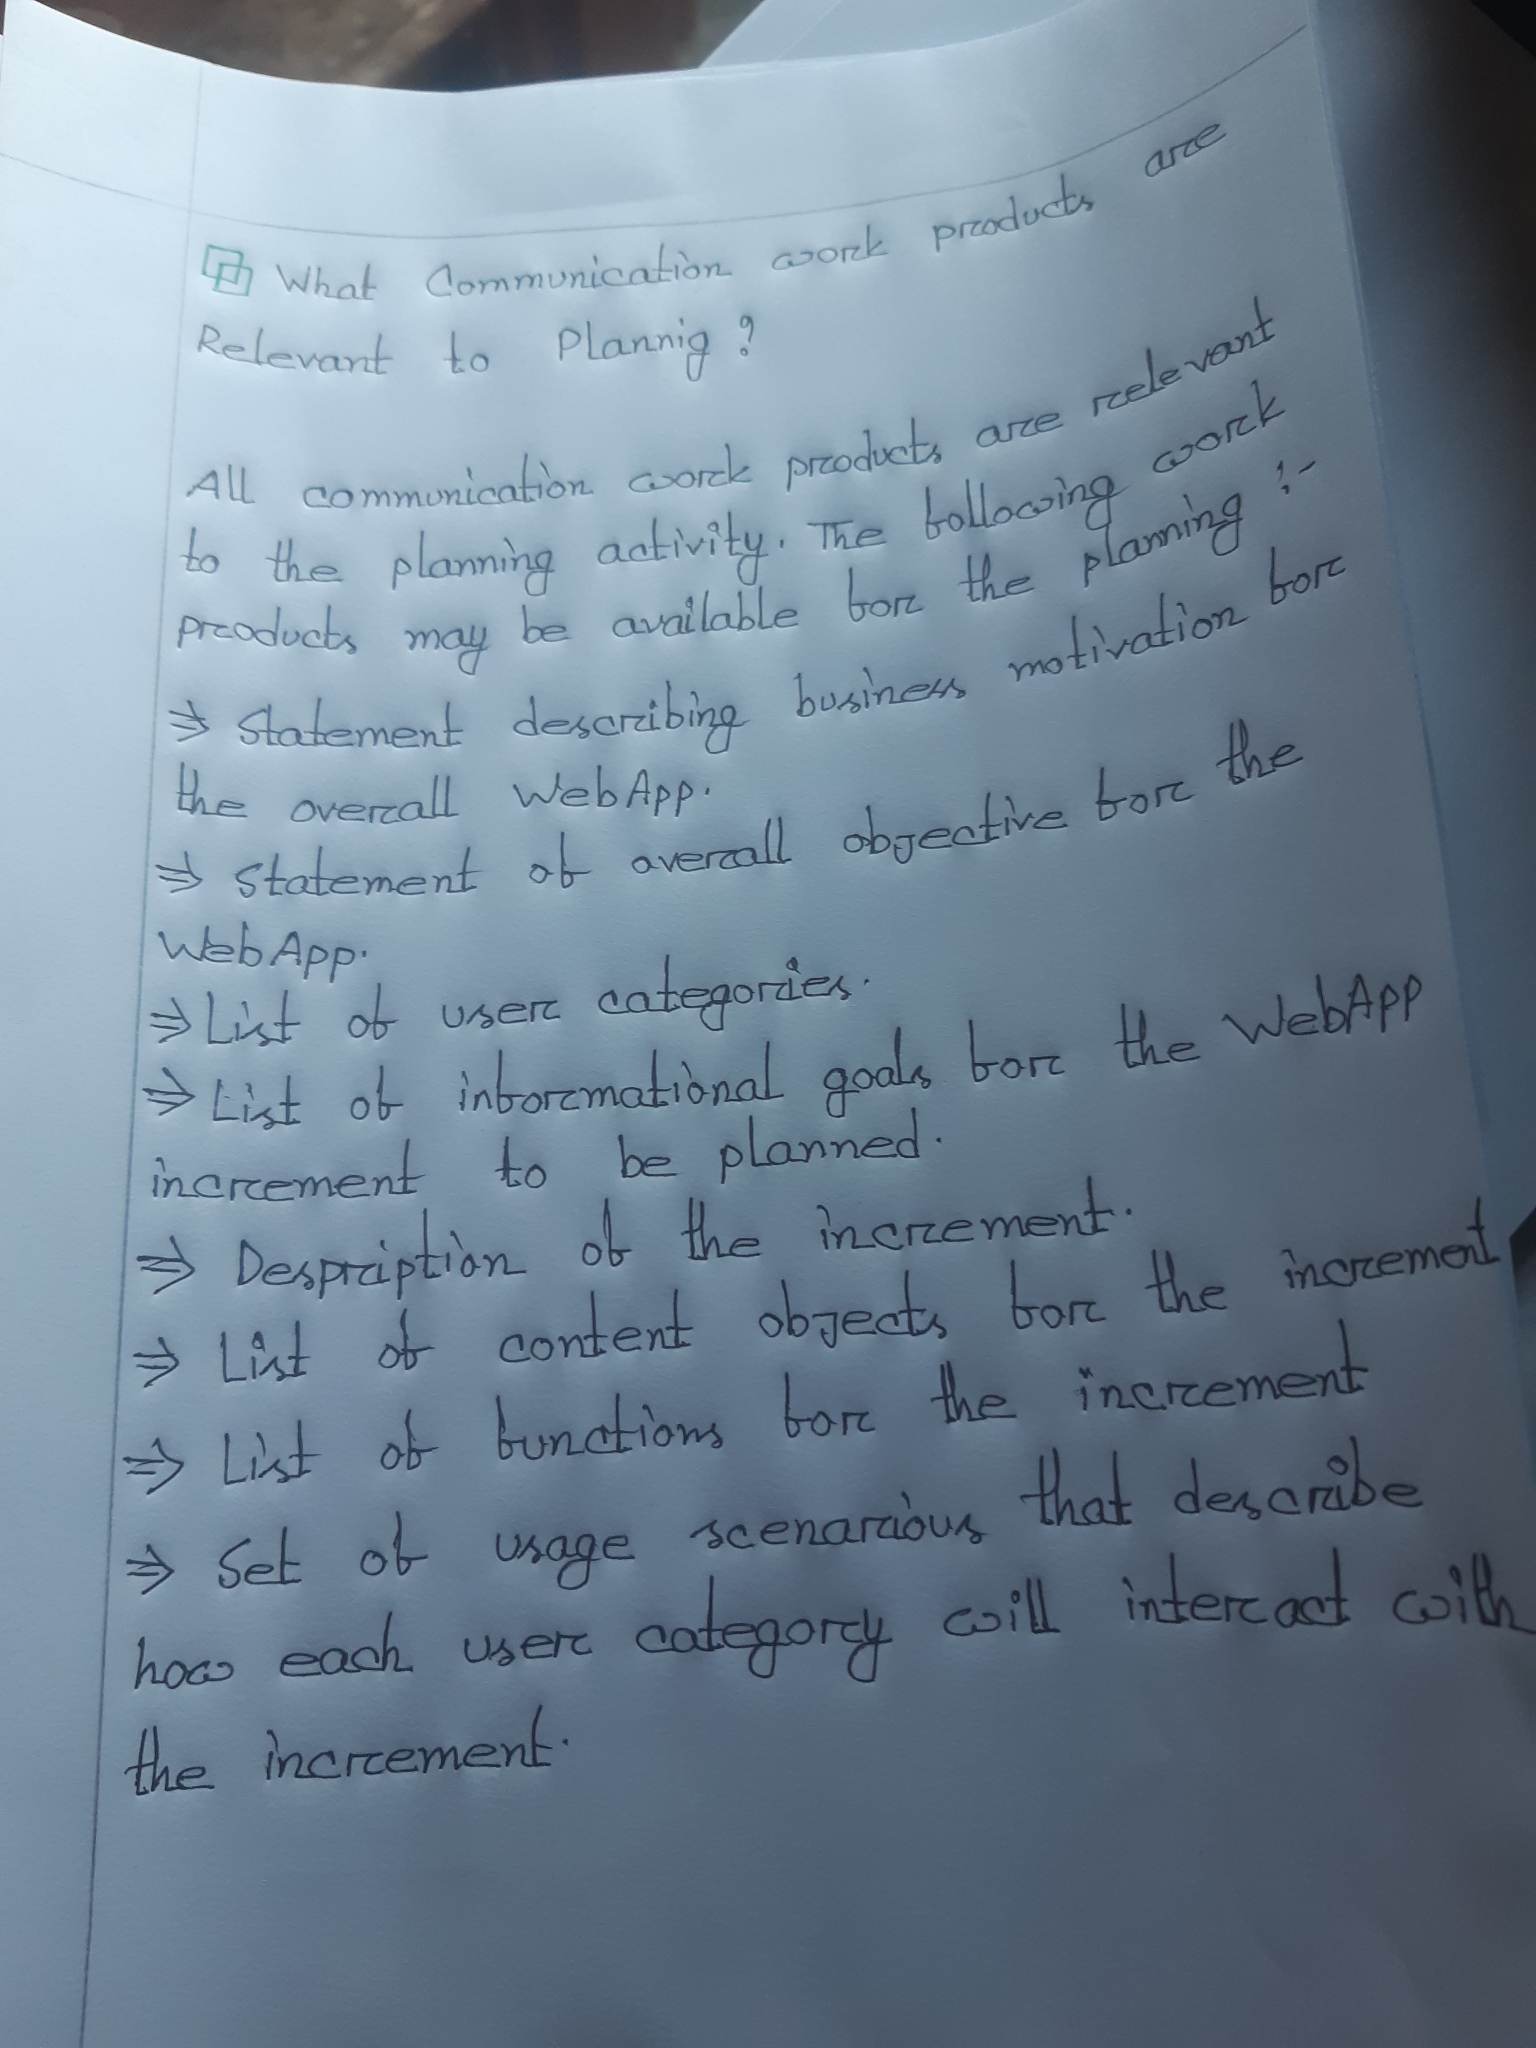 What Communication work products are
Relevant to Plannig?
All communication work products are relevant
to the planning activity. The following work
products may be available for the planning :-
⇒ Statement describing business motivation for
the overall WebApp.
⇒ Statement of overall objective for the
WebApp.
⇒ List of user categories.
⇒ List of informational goals for the WebApp
increment to be planned.
⇒ Despription of the increment.
⇒ List of content objects for the increment
⇒ List of functions for the increment
⇒ Set of usage scenarious that describe
how each user category will interact with
the increment.